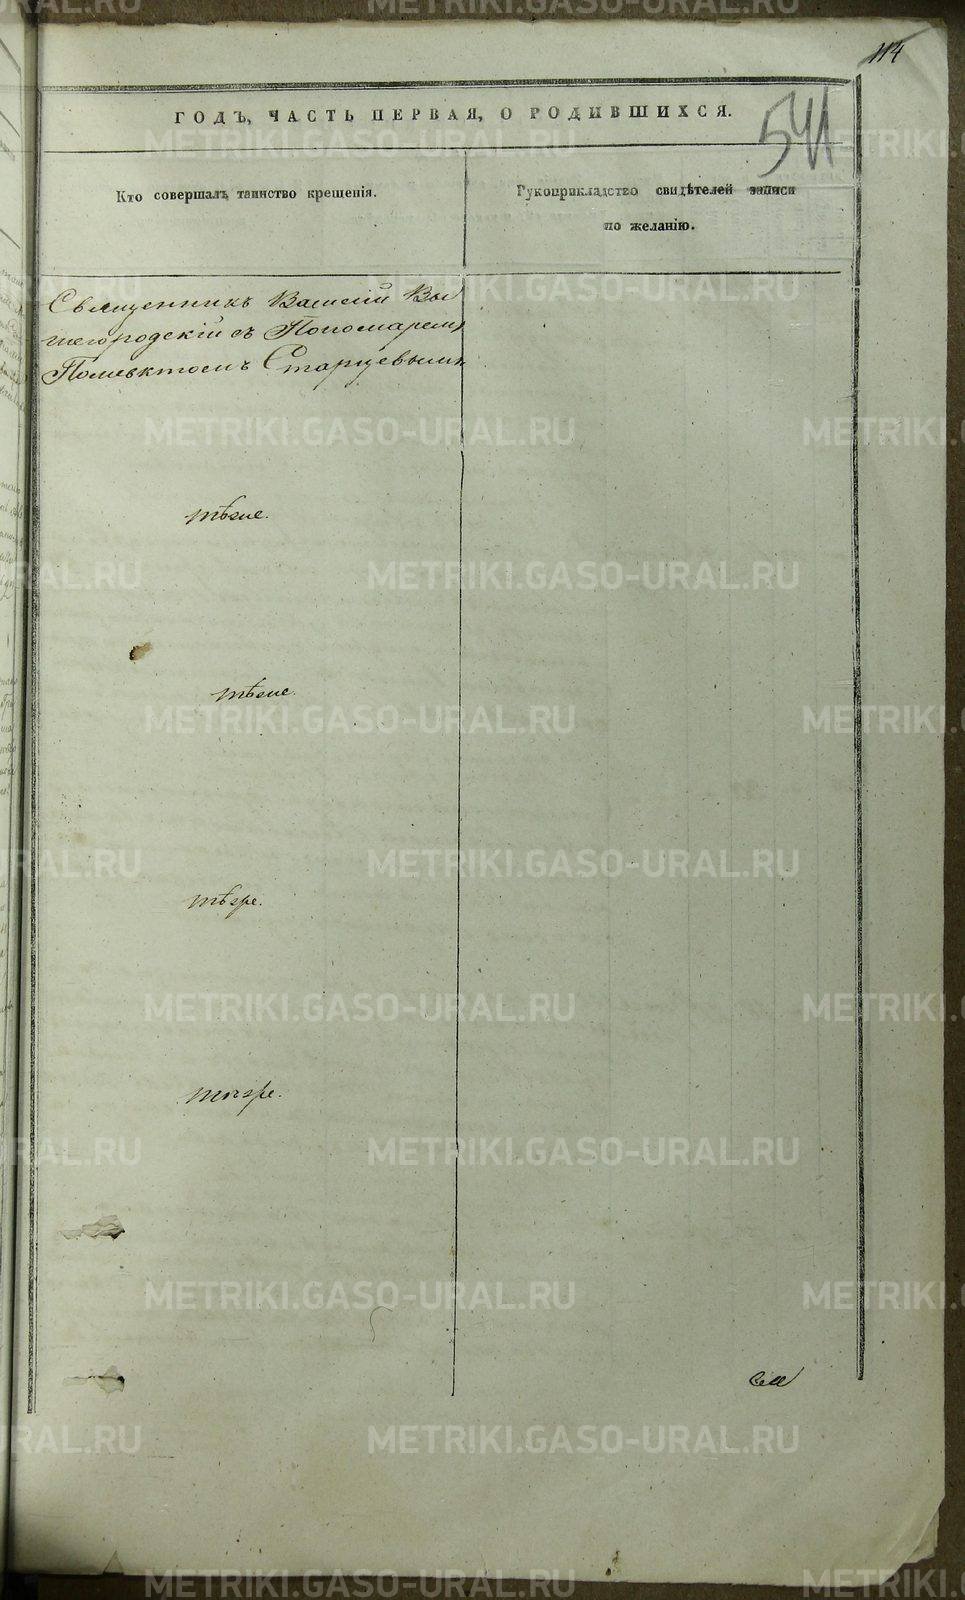 114
ГОДЪ, ЧАСТЬ ПЕРВАЯ, О РОДИВШИХСЯ.
541
Кто совершалъ таинство крещенія.
Рукоприкладство свидѣтелей записи
по желанію.
Священникъ Василій Вы
шегородскій съ Пономаремъ
Полиевктомъ Старцевымъ
тѣже.
тѣже.
тѣже.
тѣже.
METRIKI.GASO-URAL.RU